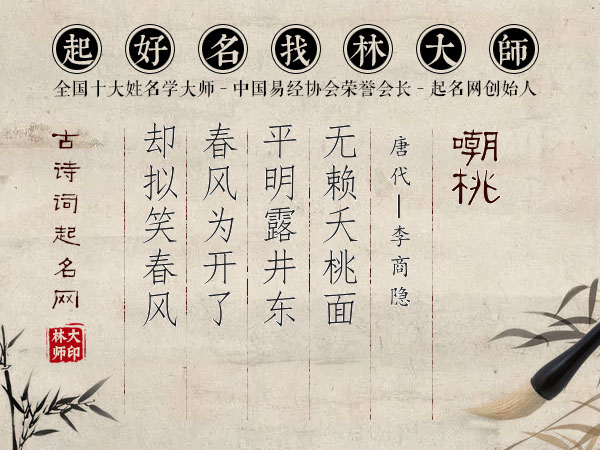 起好名找林大師
全国十大姓名学大师－中国易经协会荣誉会长－起名网创始人
嘲桃
唐代—李商隐
无赖夭桃面
平明露井东
春风为开了
却拟笑春风
古诗词起名网
大印林师